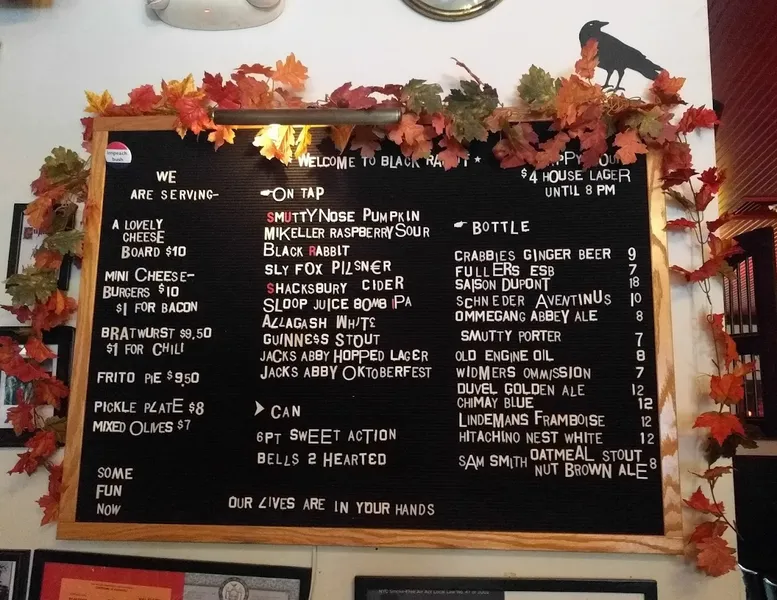 impeach
bush
WELCOME TO BLACK RABBIT
$4 HOUSE LAGER
UNTIL 8 PM
WE
ARE SERVING-
A LOVELY
CHEESE
BOARD $10
MINI CHEESE-
BURGERS $10
$1 FOR BACON
BRATWURST $9,50
$1 FOR CHILI
FRITO PIE $9,50
PICKLE PLATE $8
MIXED OLIVES $7
SOME
FUN
NOW
ON TAP
SMUTTYNOSE PUMPKIN
MIKELLER RASPBERRY SOUR
BLACK RABBIT
SLY FOX PILSN€R
SHACKSBURY CIDER
SLOOP JUICE BOMB IPA
ALLAGASH WHITE
GUINNESS STOUT
JACKS ABBY HOPPED LAGER
JACKS ABBY OKTOBERFEST
CAN
6PT SWEET ACTION
BELLS 2 HEARTED
OUR LIVES ARE IN YOUR HANDS
BOTTLE
CRABBIES GINGER BEER 9
FULLERS ESB 7
SAISON DUPONT 18
SCHNEDER AVENTINUS 10
OMMEGANG ABBEY ALE 8
SMUTTY PORTER 7
OLD ENGINE OIL 8
WIDMERS OMMISSION 7
DUVEL GOLDEN ALE 12
CHIMAY BLUE 12
LINDEMANS FRAMBOISE 12
HITACHINO NEST WHITE 12
SAM SMITH OATMEAL STOUT
NUT BROWN ALE 8